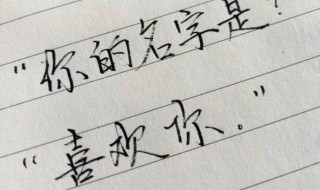 “你的名字是？
“喜欢你.”